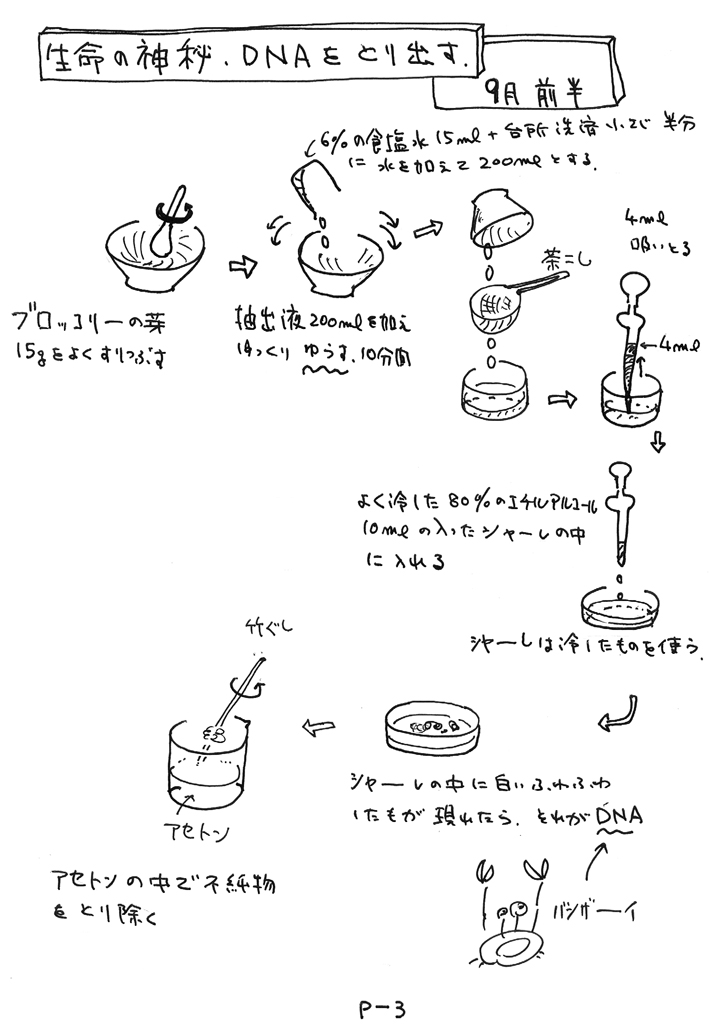 生命の神秘.DNAをとり出す.
9月 前半
6%の食塩水15ml+台所洗済小さじ半分
に水を加えて200mlとする.
ブロッコリーの葉
15gをよくすりつぶす
抽出液200mlを加え
ゆっくり ゆらす.10分間
茶こし
4ml
吸いとる
4ml
よく冷した80%のエチルアルコール
10mlの入ったシャーレの中
に入れる
シャーレは冷したものを使う.
シャーレの中に白いふわふわ
したもが現れたら.それがDNA
竹ぐし
アセトン
アセトンの中で不純物
をとり除く
バンザーイ
P-3